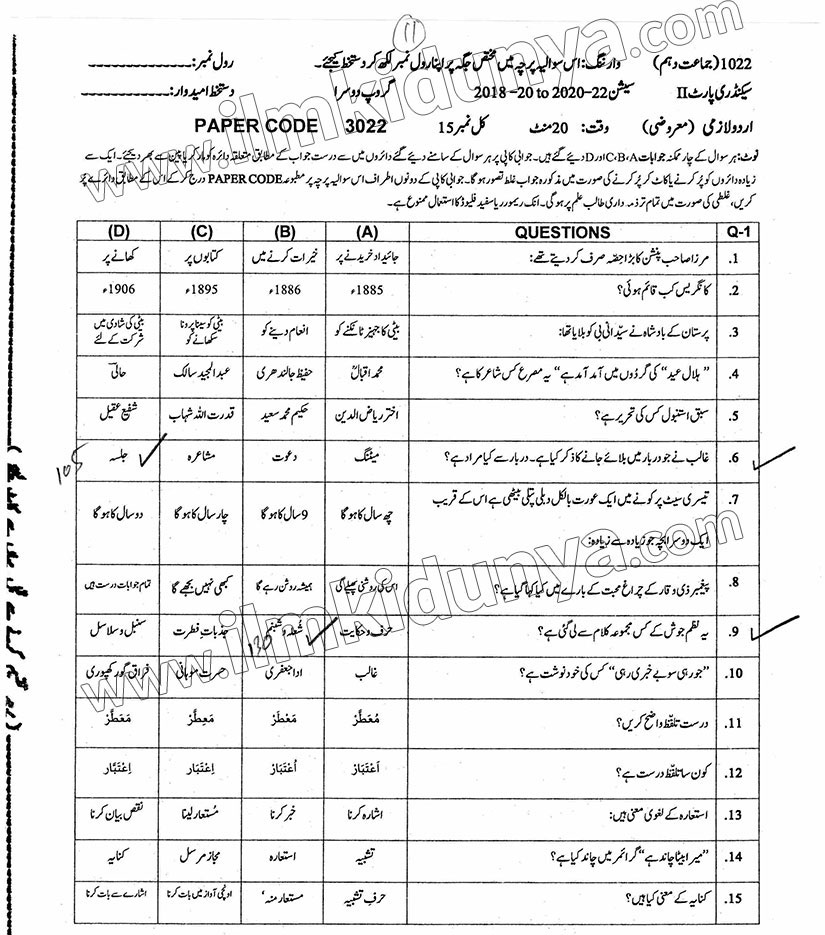 11
1022 (جماعت دہم) وارننگ: اس سوالیہ پرچہ میں مختص جگہ پر اپنا رول نمبر لکھ کر دستخط کیجئے۔ رول نمبر: ---------------
سیکنڈری پارٹ II سیشن 2018-20 to 2020-22 گروپ دوسرا دستخط امیدوار: ---------------
اردو لازمی (معروضی) وقت: 20 منٹ کل نمبر 15 PAPER CODE 3022
نوٹ: ہر سوال کے چار ممکنہ جوابات C،B،A اور D دیئے گئے ہیں۔ جوابی کاپی پر ہر سوال کے سامنے دیئے گئے دائروں میں سے درست جواب کے مطابق متعلقہ دائرہ کو مارکر یا پین سے بھر دیجئے۔ ایک سے
زیادہ دائروں کو پُر کرنے یا کاٹ کر پُر کرنے کی صورت میں مذکورہ جواب غلط تصور ہوگا۔ جوابی کاپی کے دونوں اطراف اس سوالیہ پرچہ پر مطبوعہ PAPER CODE درج کر کے اس کے مطابق دائرے پُر
کریں، غلطی کی صورت میں تمام تر ذمہ داری طالب علم پر ہوگی۔ انک ریموور یا سفید فلیوڈ کا استعمال ممنوع ہے۔
Q-1 QUESTIONS (A) (B) (C) (D)
1. مرزا صاحب پنشن کا بڑا حصّہ صرف کر دیتے تھے: جائیداد خریدنے پر خیرات کرنے میں کتابوں پر کھانے پر
2. کانگریس کب قائم ہوئی؟ 1885ء 1886ء 1895ء 1906ء
3. پرستان کے بادشاہ نے سیّدانی بی کو بلایا تھا: بیٹی کا جہیز ٹانکنے کو انعام دینے کو بیٹی کو سینا پرونا سکھانے کو بیٹی کی شادی میں شرکت کے لئے
4. "ہلال عید" کی گردُوں میں آمد آمد ہے" یہ مصرع کس شاعر کا ہے؟ محمد اقبالؒ حفیظ جالندھری عبدالمجید سالک حالیؔ
5. سبق استنبول کس کی تحریر ہے؟ اختر ریاض الدین حکیم محمد سعید قدرت اللہ شہاب شفیع عقیل
6. غالب نے جو دربار میں بلائے جانے کا ذکر کیا ہے۔ دربار سے کیا مراد ہے؟ میٹنگ دعوت مشاعرہ جلسہ
105
7. تیسری سیٹ پر کونے میں ایک عورت بالکل دبلی پتلی بیٹھی ہے اس کے قریب
ایک دوسرا بچہ جو زیادہ سے زیادہ: چھ سال کا ہوگا 9 سال کا ہوگا چار سال کا ہوگا دو سال کا ہوگا
8. پیغمبر ذی وقار کے چراغِ محبت کے بارے میں کیا کہا گیا ہے؟ اس کی روشنی پھیلے گی ہمیشہ روشن رہے گا کبھی نہیں بجھے گا تمام جوابات درست ہیں
9. یہ نظم جوش کے کس مجموعہ کلام سے لی گئی ہے؟ حرف و حکایت شعلہ و شبنم جذباتِ فطرت سنبل و سلاسل
130
10. "جو رہی سو بے خبری رہی" کس کی خود نوشت ہے؟ غالب ادا جعفری حسرت موہانی فراق گورکھپوری
11. درست تلفّظ واضح کریں؟ مُعَطَّرْ مَعْطَرْ مَعِطَّرْ مَعَطَّرْ
12. کون سا تلفّظ درست ہے؟ اَعْتِبَار اُعْتِبَار اِعْتِبَار اِعْتَبَّار
13. استعارہ کے لغوی معنی ہیں: اشارہ کرنا خبر کرنا مُستعار لینا نقص بیان کرنا
14. "میرا بیٹا چاند ہے" گرائمر میں چاند کیا ہے؟ تشبیہ استعارہ مجاز مرسل کنایہ
15. کنایہ کے معنی کیا ہیں؟ حرفِ تشبیہ مستعار منہ' اونچی آواز میں بات کرنا اشارے سے بات کرنا
www.ilmkidunya.com
www.ilmkidunya.com